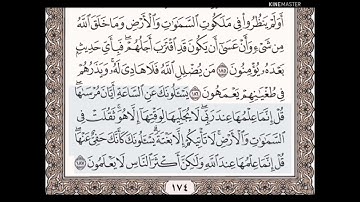 KINEMASTER
أَوَلَمْ يَنظُرُوا۟ فِى مَلَكُوتِ ٱلسَّمَٰوَٰتِ وَٱلْأَرْضِ وَمَا خَلَقَ ٱللَّهُ
مِن شَىْءٍ وَأَنْ عَسَىٰٓ أَن يَكُونَ قَدِ ٱقْتَرَبَ أَجَلُهُمْ ۖ فَبِأَىِّ حَدِيثٍۭ
بَعْدَهُۥ يُؤْمِنُونَ ١٨٥ مَن يُضْلِلِ ٱللَّهُ فَلَا هَادِىَ لَهُۥ ۚ وَيَذَرُهُمْ فِى
طُغْيَٰنِهِمْ يَعْمَهُونَ ١٨٦ يَسْـَٔلُونَكَ عَنِ ٱلسَّاعَةِ أَيَّانَ مُرْسَىٰهَا ۖ
قُلْ إِنَّمَا عِلْمُهَا عِندَ رَبِّى ۖ لَا يُجَلِّيهَا لِوَقْتِهَآ إِلَّا هُوَ ۚ ثَقُلَتْ فِى
ٱلسَّمَٰوَٰتِ وَٱلْأَرْضِ ۚ لَا تَأْتِيكُمْ إِلَّا بَغْتَةً ۗ يَسْـَٔلُونَكَ كَأَنَّكَ حَفِىٌّ عَنْهَا ۖ
قُلْ إِنَّمَا عِلْمُهَا عِندَ ٱللَّهِ وَلَٰكِنَّ أَكْثَرَ ٱلنَّاسِ لَا يَعْلَمُونَ ١٨٧
١٧٤